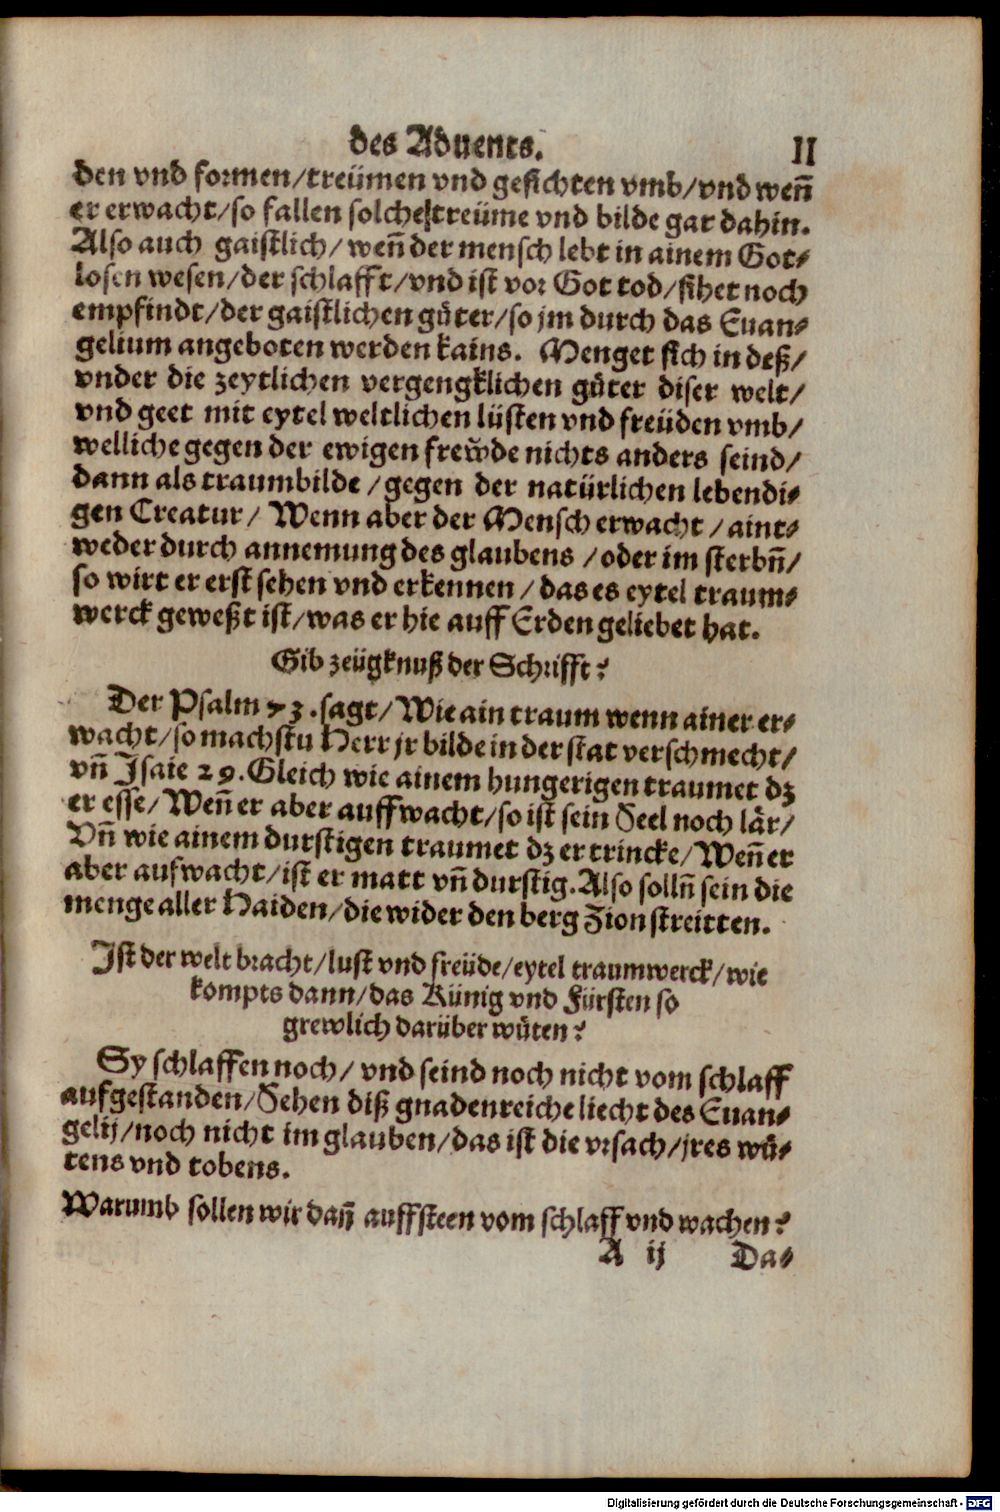 des Aduents. II
den vnd formen/treümen vnd gesichten vmb/vnd weñ
er erwacht/so fallen solche treüme vnd bilde gar dahin.
Also auch gaistlich/ weñ der mensch lebt in ainem Got⸗
losen wesen/der schlafft/vnd ist vor Got tod/sihet noch
empfindt/der gaistlichen gůter/so jm durch das Euan⸗
gelium angeboten werden kains. Menget sich in deß/
vnder die zeytlichen vergengklichen gůter diser welt/
vnd geet mit eytel weltlichen lüsten vnd freüden vmb/
welliche gegen der ewigen frew̌de nichts anders seind/
dann als traumbilde /gegen der natürlichen lebendi⸗
gen Creatur/ Wenn aber der Mensch erwacht /aint⸗
weder durch annemung des glaubens /oder im sterbñ/
so wirt er erst sehen vnd erkennen /das es eytel traum⸗
werck geweßt ist/was er hie auff Erden geliebet hat.
Gib zeügknuß der Schrifft?
Der Psalm 73.sagt/Wie ain traum wenn ainer er⸗
wacht/so machstu Herr jr bilde in der stat verschmecht/
vñ Isaie 29.Gleich wie ainem hungerigen traumet dz
er esse/Weñ er aber auffwacht/so ist sein Seel noch lår/
Vñ wie ainem durstigen traumet dz er trincke/Weñ er
aber aufwacht/ist er matt vñ durstig.Also sollñ sein die
menge aller Haiden/die wider den berg Zion streitten.
Ist der welt bracht/lust vnd freüde/eytel traumwerck/wie
kompts dann/das Künig vnd Fürsten so
grewlich darüber wůten?
Sy schlaffen noch/ vnd seind noch nicht vom schlaff
aufgestanden/Sehen diß gnadenreiche liecht des Euan⸗
gelij/noch nicht im glauben/das ist die vrsach/jres wů⸗
tens vnd tobens.
Warumb sollen wir dañ auffsteen vom schlaff vnd wachen?
A ij Da⸗
Digitalisierung gefördert durch die Deutsche Forschungsgemeinschaft - DFG